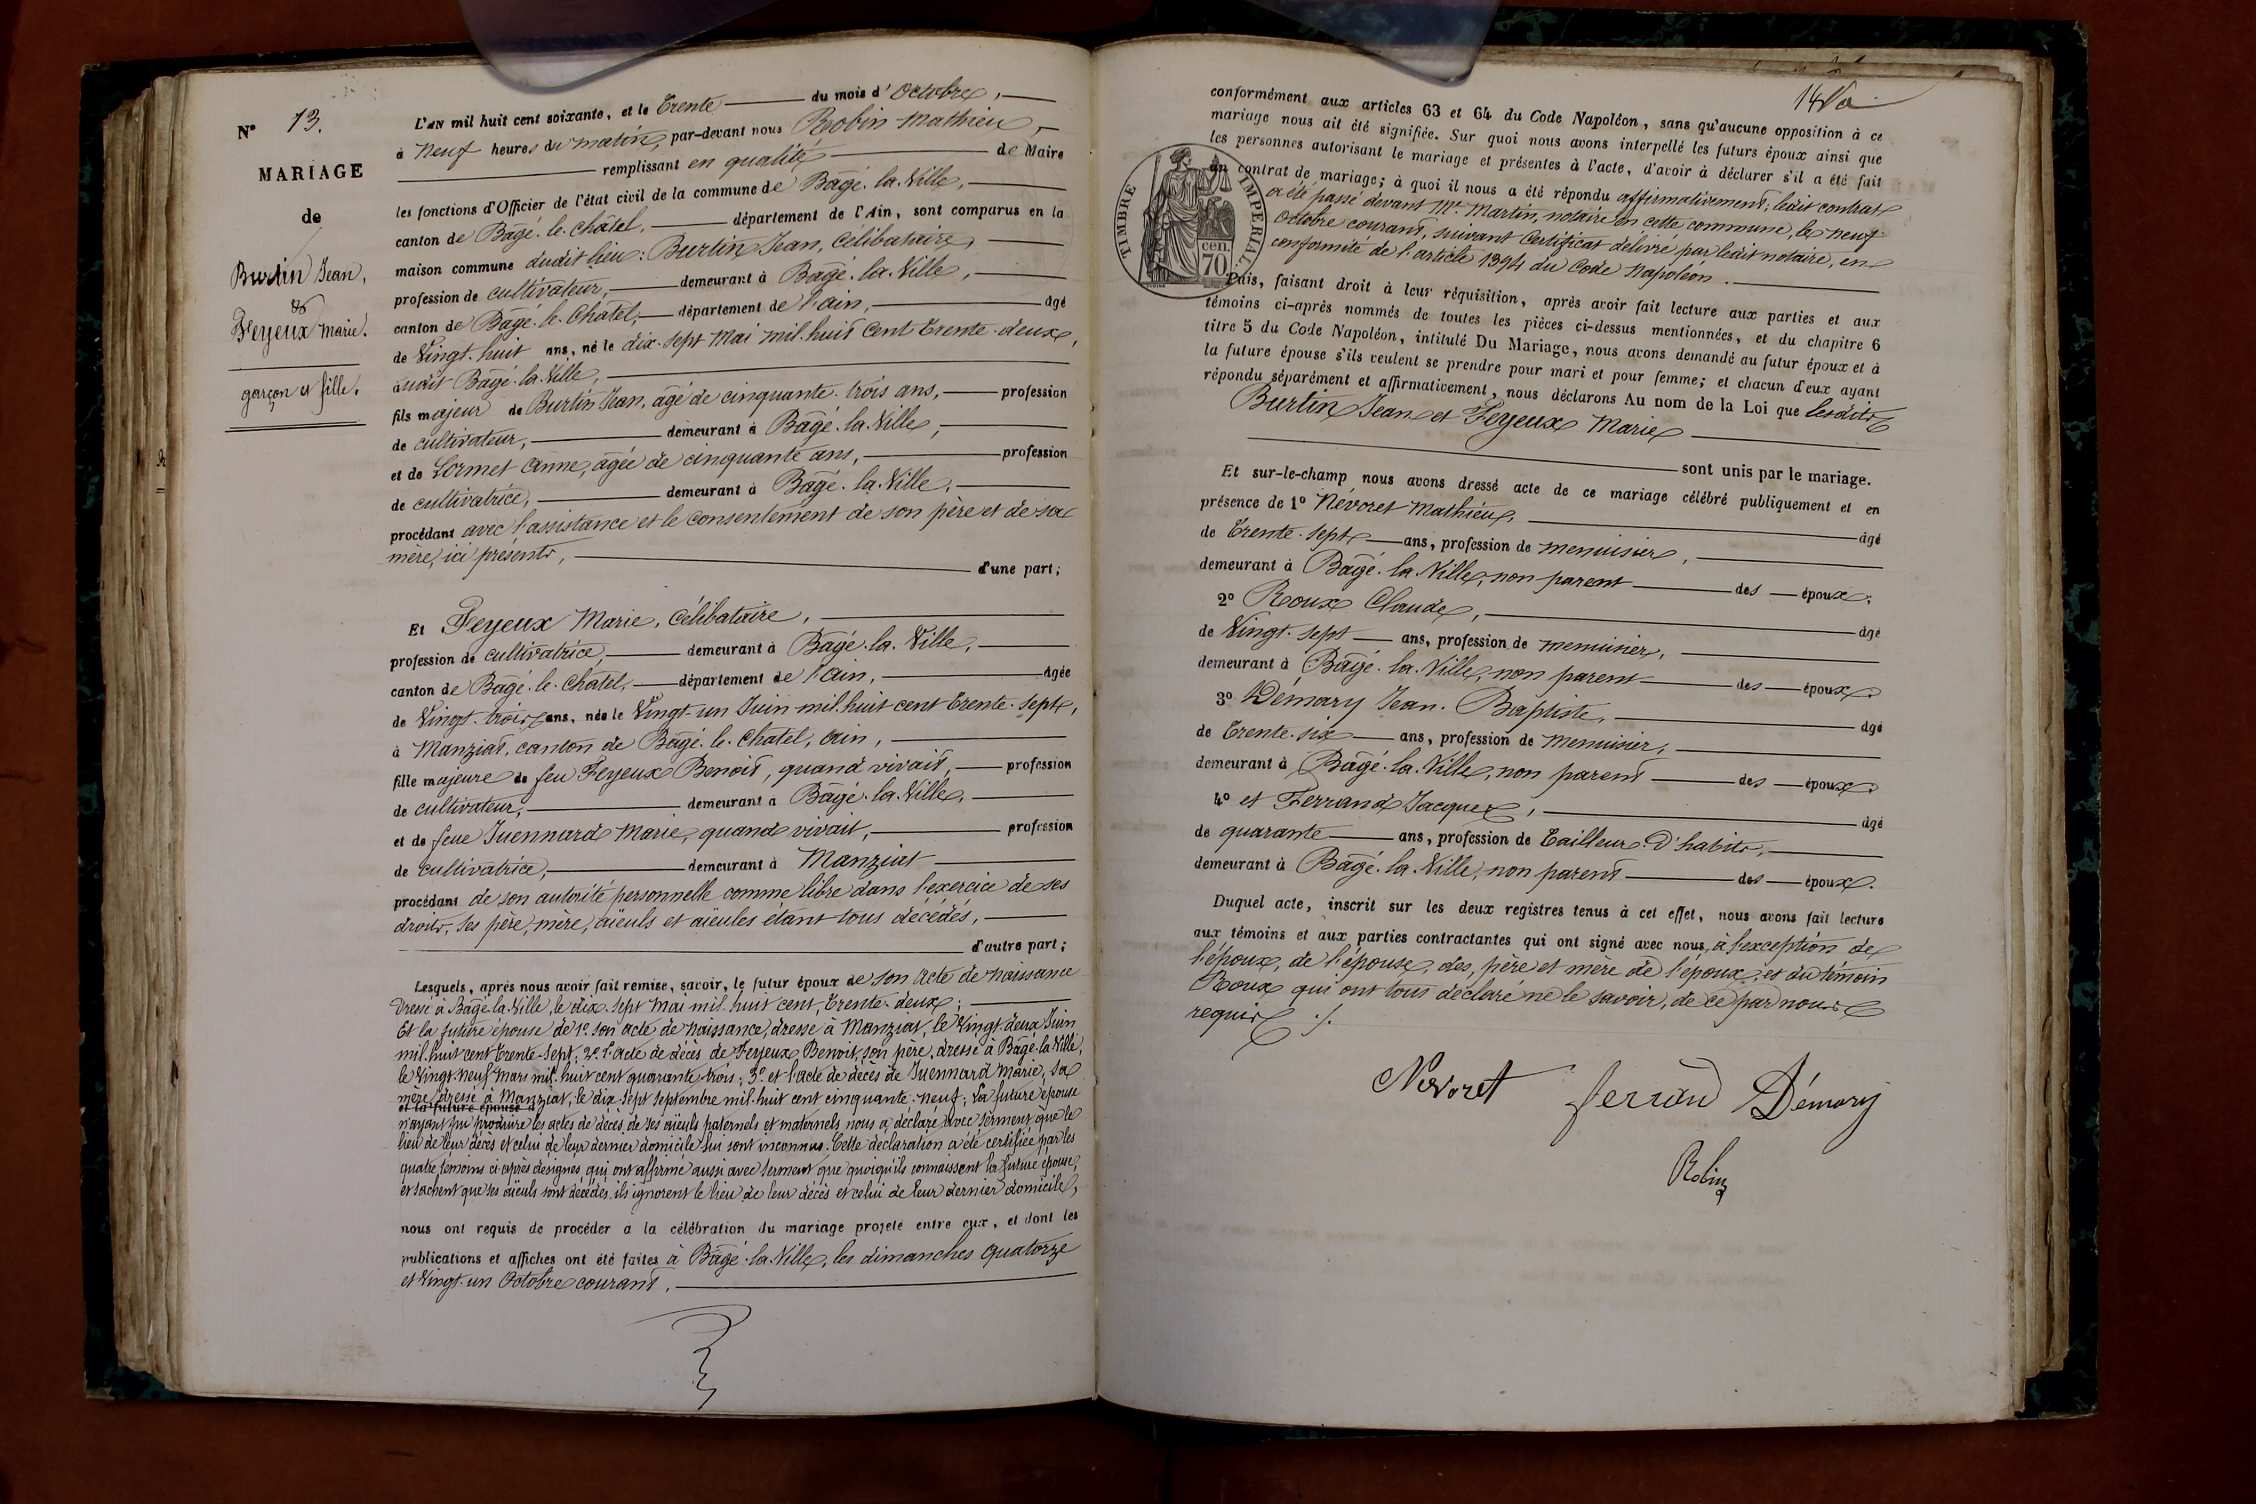 N° 13.
MARIAGE
de
Burtin Jean,
&
Feyeux Marie.
garçon et fille.
L'AN mil huit cent soixante, et le Trente du mois d'Octobre,
à Neuf heures du matin, par-devant nous Robin Mathieu,
remplissant en qualité de Maire
les fonctions d'Officier de l'état civil de la commune de Bâgé-la-Ville,
canton de Bâgé-le-Châtel, département de l'Ain, sont comparus en la
maison commune dudit lieu: Burtin Jean, Célibataire,
profession de cultivateur, demeurant à Bâgé-la-Ville,
canton de Bâgé-le-Châtel, département de l'ain, âgé
de Vingt-huit ans, né le dix-sept Mai mil-huit Cent Trente-deux,
audit Bâgé-la-Ville,
fils majeur de Burtin Jean, âgé de cinquante-trois ans, profession
de cultivateur, demeurant à Bâgé-la-Ville,
et de Lormet Anne, âgée de cinquante ans, profession
de cultivatrice, demeurant à Bâgé-la-Ville,
procédant avec l'assistance et le consentement de son père et de sa
mère, ici présents,
d'une part;
Et Feyeux Marie, Célibataire,
profession de cultivatrice, demeurant à Bâgé-la-Ville,
canton de Bâgé-le-Châtel, département de l'ain, âgée
de Vingt-trois ans, née le Vingt-un Juin mil-huit cent Trente-sept,
à Manziat, canton de Bâgé-le-Châtel, Ain,
fille majeure de feu Feyeux Benoit, quand vivait, profession
de cultivateur, demeurant à Bâgé-la-Ville,
et de feue Juennard Marie, quand vivait, profession
de cultivatrice, demeurant à Manziat
procédant de son autorité personnelle comme libre dans l'exercice de ses
droits, ses père, mère, aïeuls et aïeules étant tous décédés,
d'autre part;
Lesquels, après nous avoir fait remise, savoir, le futur époux de son Acte de naissance
Dressé à Bâgé-la-Ville, le dix-sept Mai mil-huit cent, Trente-deux;
Et la future épouse de 1° son acte de naissance, dressé à Manziat, le Vingt-deux Juin
mil-huit cent Trente-sept; 2° l'acte de décès de Feyeux Benoit, son père, dressé à Bâgé-la-Ville,
le Vingt-neuf Mars mil-huit cent quarante-trois; 3° et l'acte de décès de Juennard Marie, sa
mère, dressé à Manziat, le dix-sept Septembre mil-huit cent cinquante-neuf; La future épouse
et la future épouse d
n'ayant pu produire les actes de décès de ses aïeuls paternels et maternels nous a déclaré avec serment que le
lieu de leur décès et celui de leur dernier domicile lui sont inconnus. Cette déclaration a été certifiée par les
quatre témoins ci-après désignés qui ont affirmé aussi avec serment que quoiqu'ils connaissent la future épouse,
et sachent que ses aïeuls sont décédés, ils ignorent le lieu de leur décès et celui de leur dernier domicile,
nous ont requis de procéder à la célébration du mariage projeté entre eux, et dont les
publications et affiches ont été faites à Bâgé-la-Ville, les dimanches quatorze
et Vingt-un Octobre courant.
conformément aux articles 63 et 64 du Code Napoléon, sans qu'aucune opposition à ce
mariage nous ait été signifiée. Sur quoi nous avons interpellé les futurs époux ainsi que
les personnes autorisant le mariage et présentes à l'acte, d'avoir à déclarer s'il a été fait
un contrat de mariage; à quoi il nous a été répondu affirmativement; ledit contrat
a été passé devant Me. Martin, notaire en cette commune, le neuf
Octobre courant, suivant Certificat délivré par ledit notaire, en
conformité de l'article 1394 du Code Napoléon.
TIMBRE IMPERIAL
cen.
70
Puis, faisant droit à leur réquisition, après avoir fait lecture aux parties et aux
témoins ci-après nommés de toutes les pièces ci-dessus mentionnées, et du chapitre 6
titre 5 du Code Napoléon, intitulé Du Mariage, nous avons demandé au futur époux et à
la future épouse s'ils veulent se prendre pour mari et pour femme; et chacun d'eux ayant
répondu séparément et affirmativement, nous déclarons Au nom de la Loi que lesdits
Burtin Jean et Feyeux Marie
sont unis par le mariage.
Et sur-le-champ nous avons dressé acte de ce mariage célébré publiquement et en
présence de 1° Névoret Mathieu, âgé
de Trente-sept ans, profession de menuisier,
demeurant à Bâgé-la-Ville, non parent des époux;
2° Roux Claude, âgé
de Vingt-sept ans, profession de menuisier,
demeurant à Bâgé-la-Ville, non parent des époux.
3° Démary Jean-Baptiste, âgé
de Trente-six ans, profession de menuisier,
demeurant à Bâgé-la-Ville, non parent des époux.
4° et Ferrand Jacques, âgé
de quarante ans, profession de Tailleur-D'habits,
demeurant à Bâgé-la-Ville, non parent des époux.
Duquel acte, inscrit sur les deux registres tenus à cet effet, nous avons fait lecture
aux témoins et aux parties contractantes qui ont signé avec nous, à l'exception de
l'époux, de l'épouse, des père et mère de l'époux, et du témoin
Roux qui ont tous déclaré ne le savoir, de ce par nous
requis ./.
Nevoret ferrand Démary
Robin